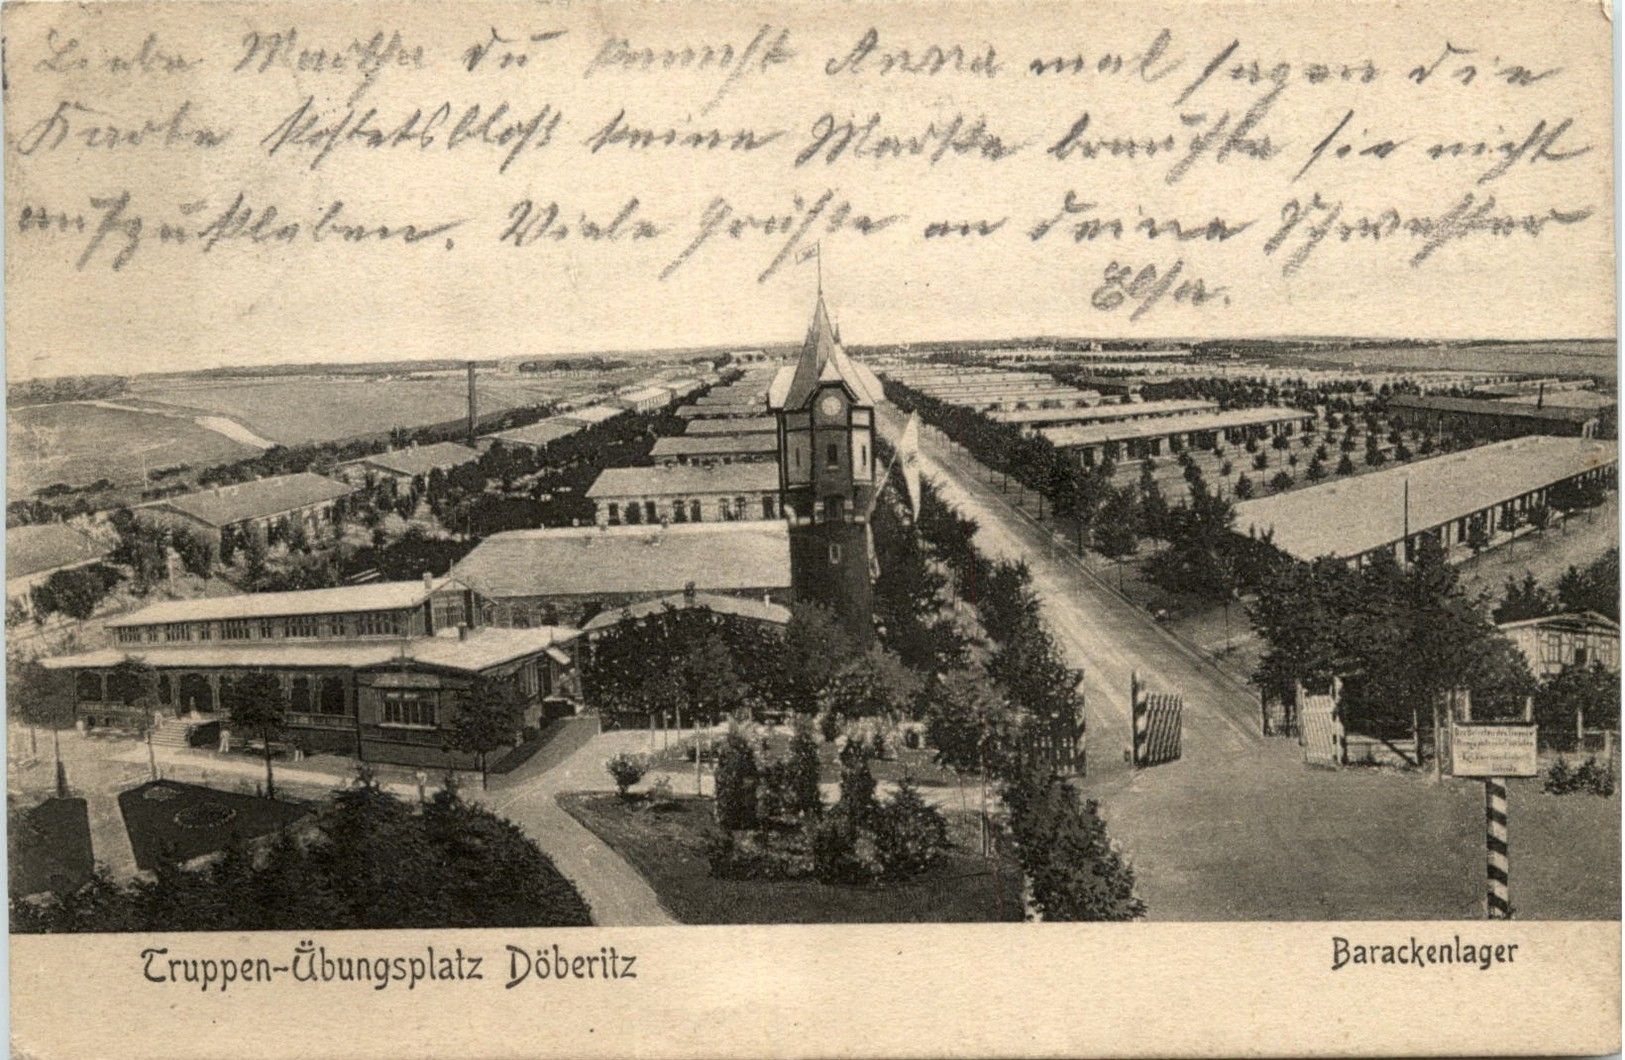 Liebe Martha du kannst Anna mal sagen die
Karte kostets bloß keine Marke brauchte sie nicht
aufzukleben. Viele Grüße an deine Schwester
Elsa.
Truppen-Übungsplatz Döberitz
Barackenlager